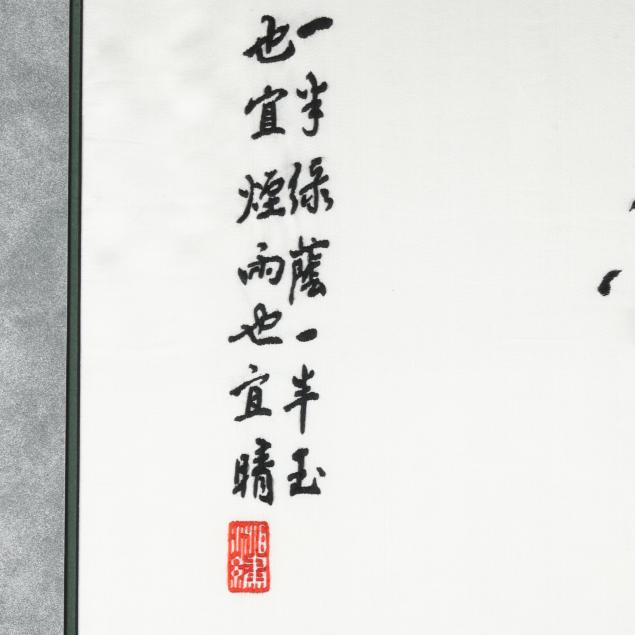 一半绿蔭一半玉
也宜煙雨也宜晴